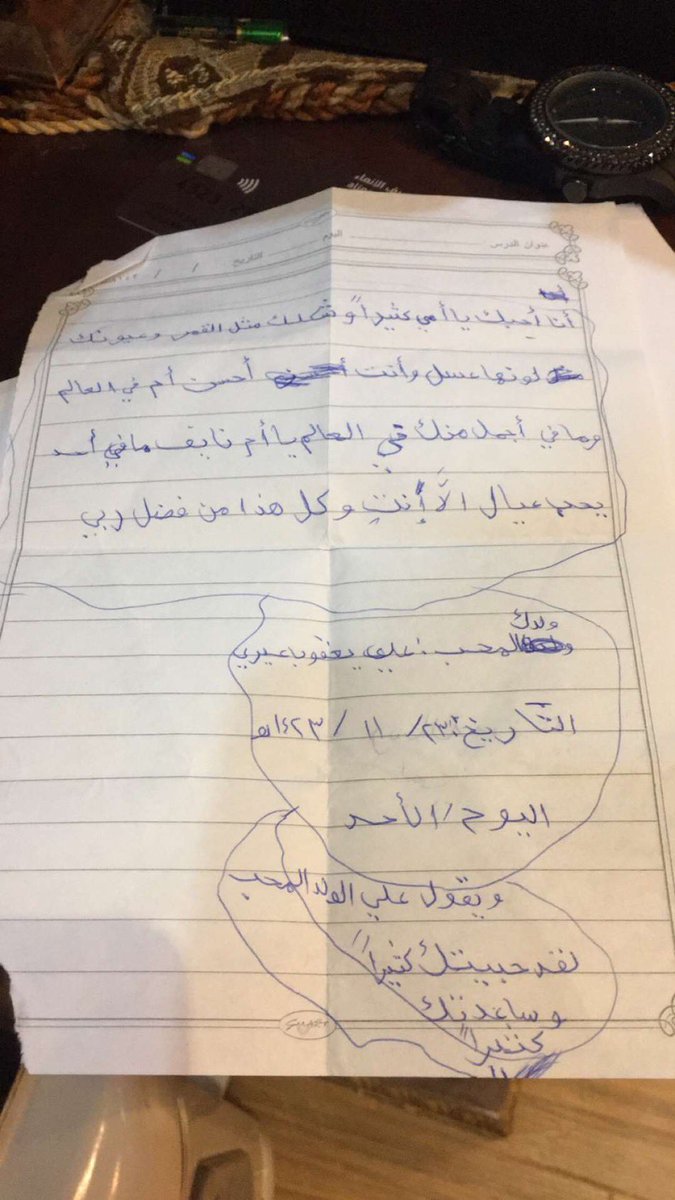 عنوان الدرس اليوم التاريخ / /
أنا أحبك يا أمي كثيراً و شكلك مثل القمر وعيونك
لونها عسل وأنت أحسن أم في العالم
وما في أجمل منك في العالم يا أم نايف ما في أحد
يحب عيال الاَّ أنتِ وكل هذا من فضل ربي
ولدك
المحب: علي يعقوب عيري
التاريخ: ٢٣/ ١١ / ١٤٢٣هـ
اليوم / الأحد
ويقول علي الولد المحب
لقد حبيتك كثيراً
وساعدتك
كثيراً